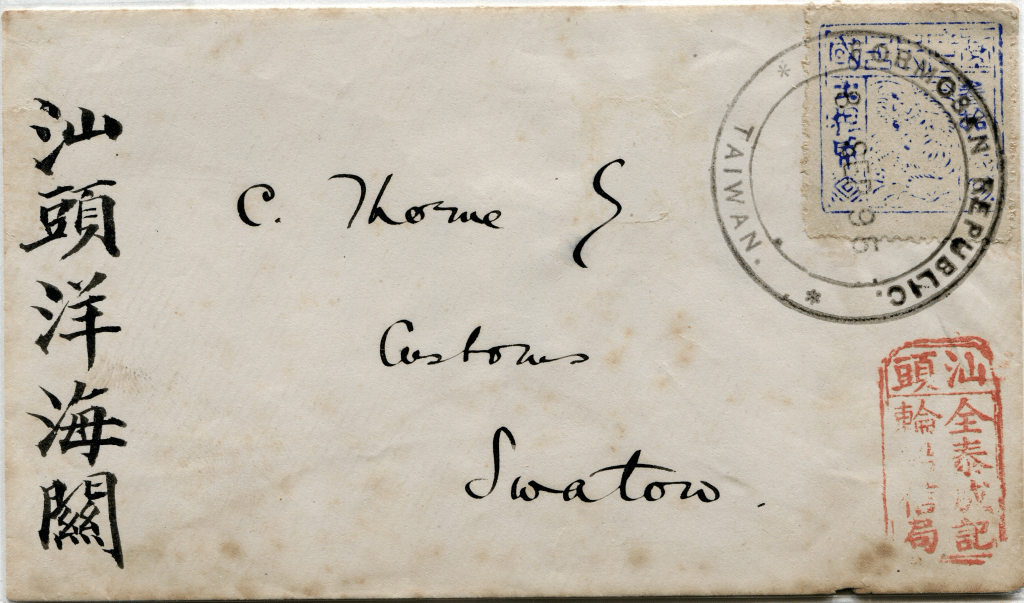 汕頭洋海關
C. Thorne
Customs
Swatow.
FORMOSAN REPUBLIC.
TAIWAN.
汕頭
全泰成記
輪信局